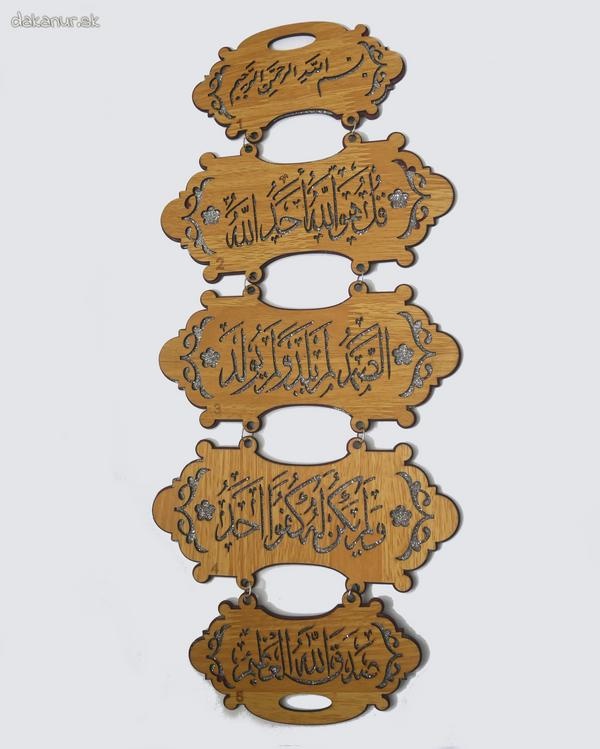 dakanur.sk
بسم الله الرحمن الرحيم
1
قل هو الله أحد الله
2
الصمد لم يلد ولم يولد
3
ولم يكن له كفوا احد
4
صدق الله العظيم
5